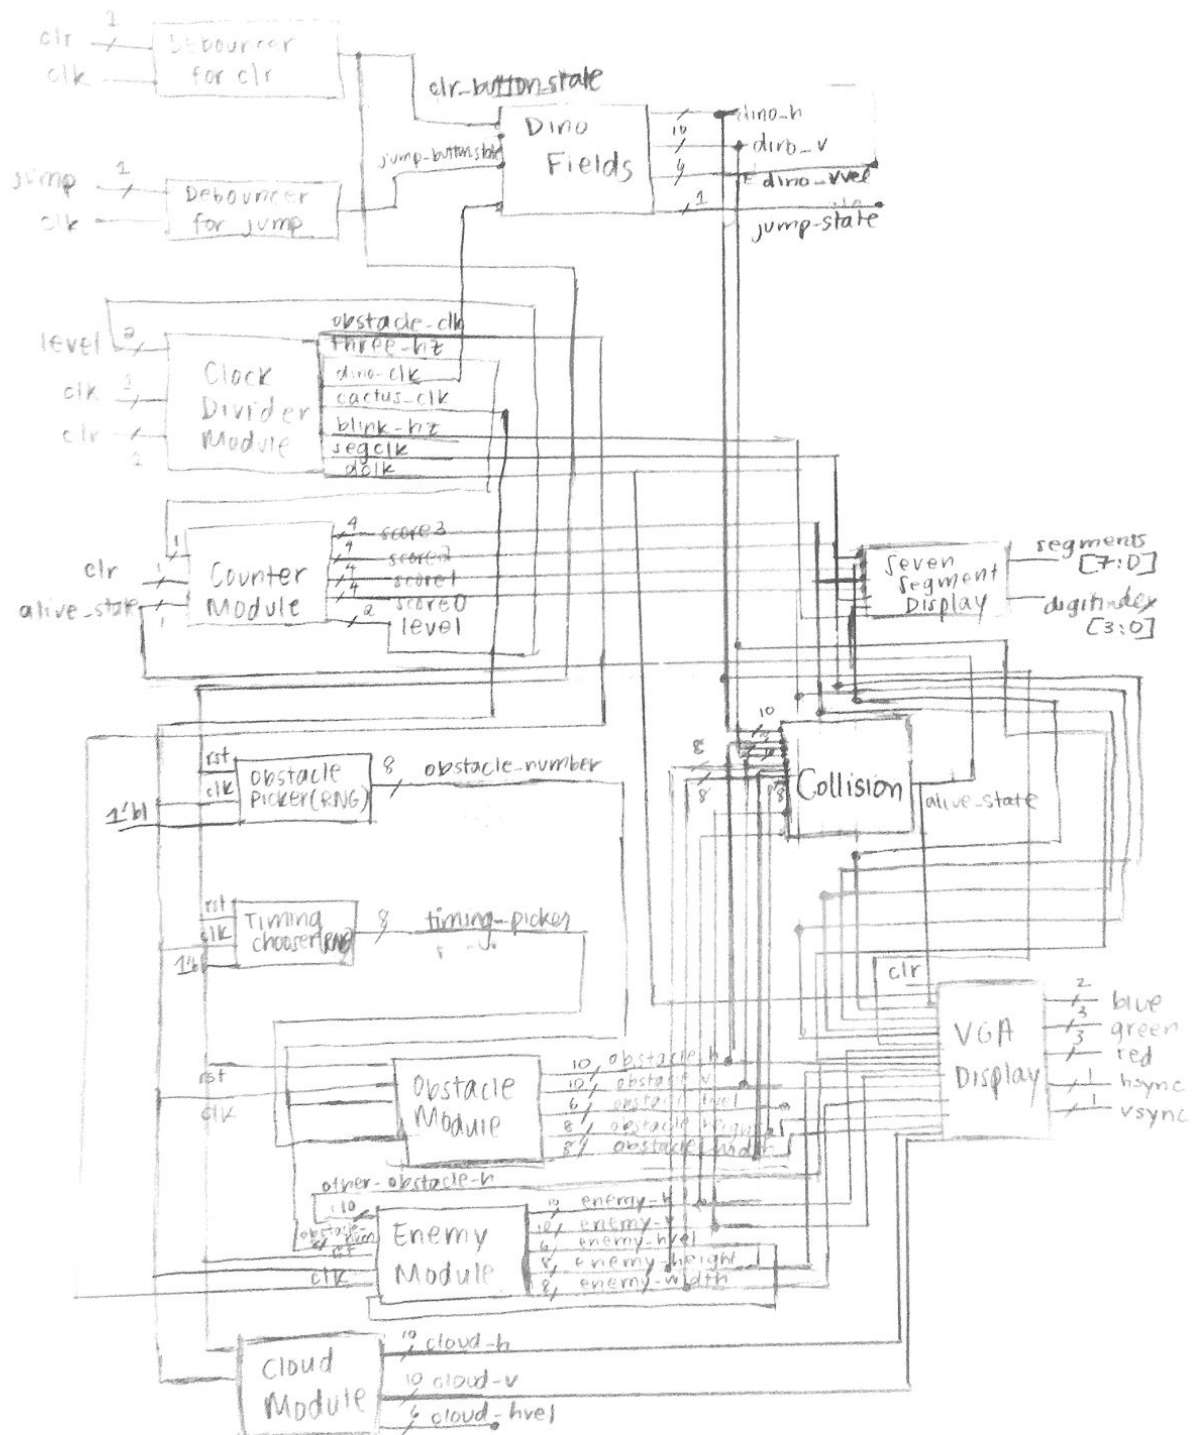 clr
1
clk
Debouncer
for clr
clr_button_state
jump
1
clk
Debouncer
for jump
jump-button state
Dino
Fields
dino_h
10
dino_v
6
dino_vvel
1
jump-state
level
2
clk
1
clr
1
Clock
Divider
Module
obstacle_clk
three-hz
dino-clk
cactus_clk
blink-hz
segclk
dclk
1
clr
1
alive_state
1
Counter
Module
4
score3
4
score2
4
score1
4
score0
2
level
Seven
Segment
Display
segments
[7:0]
digitindex
[3:0]
rst
clk
1'b1
Obstacle
Picker(RNG)
8
obstacle_number
10
8
8
Collision
alive_state
rst
clk
Timing
chooser(RNG)
8
timing_picker
clr
VGA
Display
2
blue
3
green
3
red
1
hsync
1
vsync
rst
clk
Obstacle
Module
10
obstacle_h
10
obstacle_v
6
8
obstacle_height
8
obstacle_width
other-obstacle-h
10
obstacle-
num
rst
clk
Enemy
Module
10
enemy-h
10
enemy-v
6
enemy-hvel
8
enemy-height
8
enemy-width
Cloud
Module
10
cloud-h
10
cloud-v
6
cloud-hvel